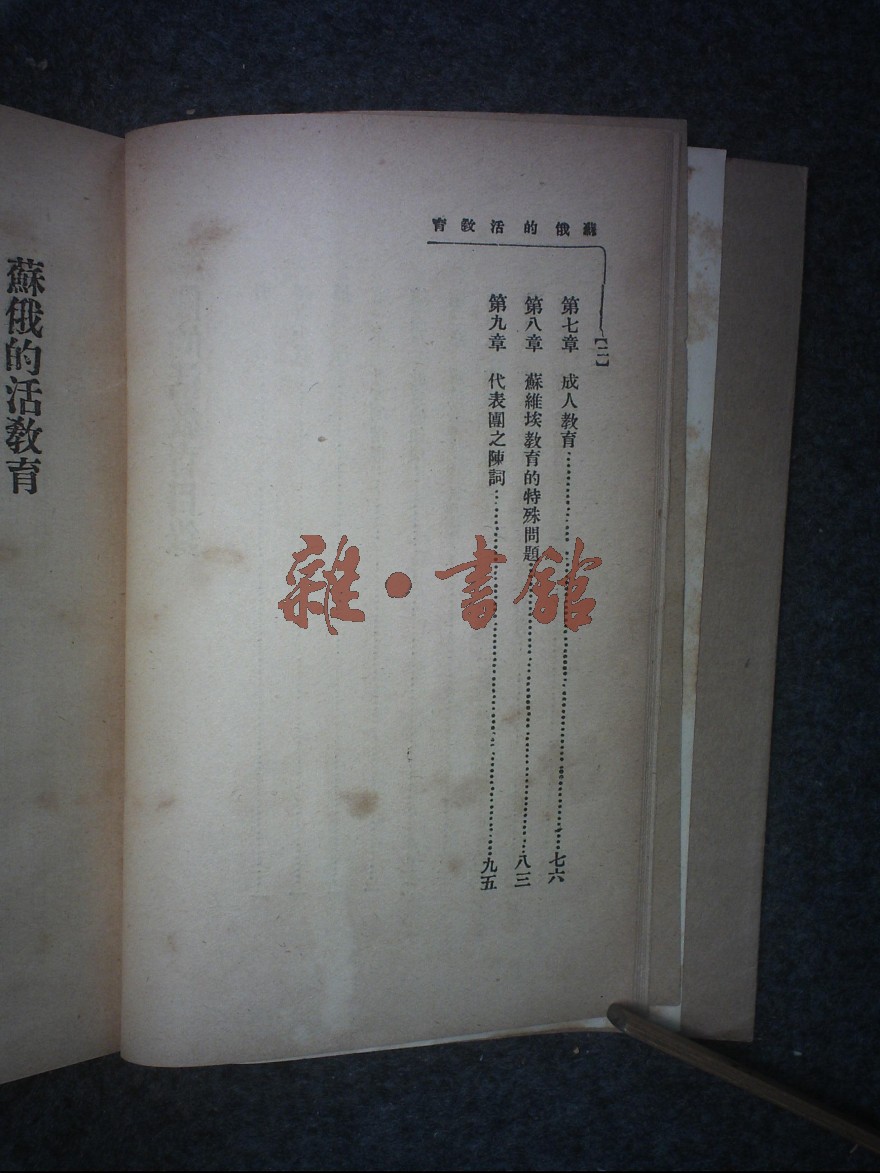 蘇俄的活教育
【二】
第七章 成人教育…………七六
第八章 蘇維埃教育的特殊問題…………八三
第九章 代表團之陳詞…………九五
蘇俄的活教育
雜·書館